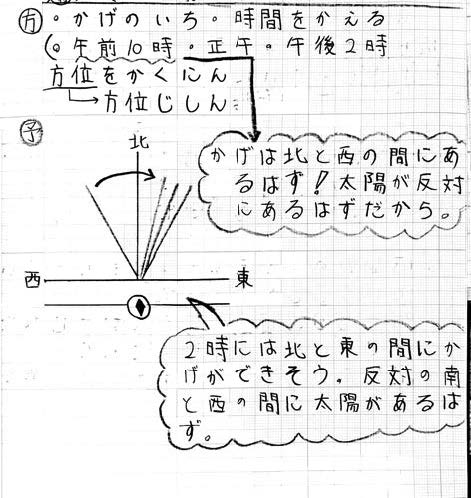 方・かげのいち・時間をかえる
(。午前10時・正午・午後2時
方位をかくにん
→方位じしん
予
北
かげは北と西の間にあ
るはず!太陽が反対
にあるはずだから。
西
東
2時には北と東の間にか
げができそう。反対の南
と西の間に太陽があるは
ず。